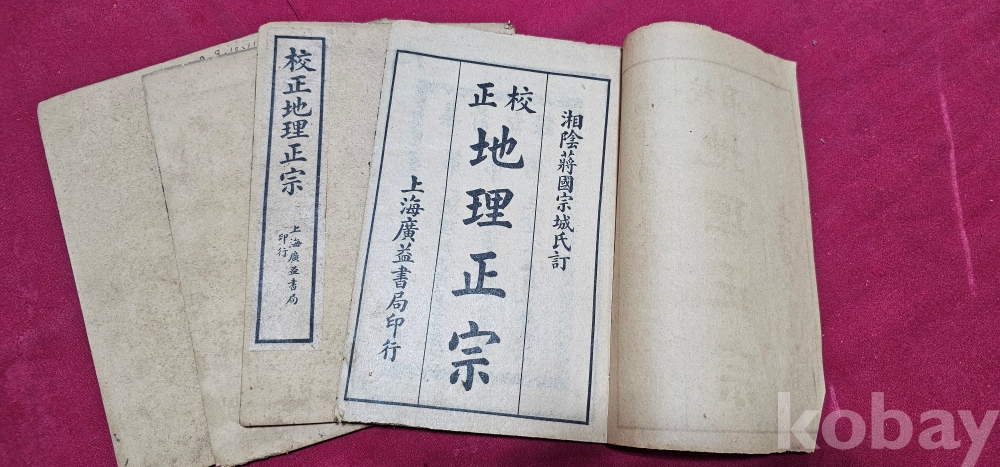 校正地理正宗
上海廣益書局
印行
湘陰蔣國宗城氏訂
校正
地理正宗
上海廣益書局印行
kobay